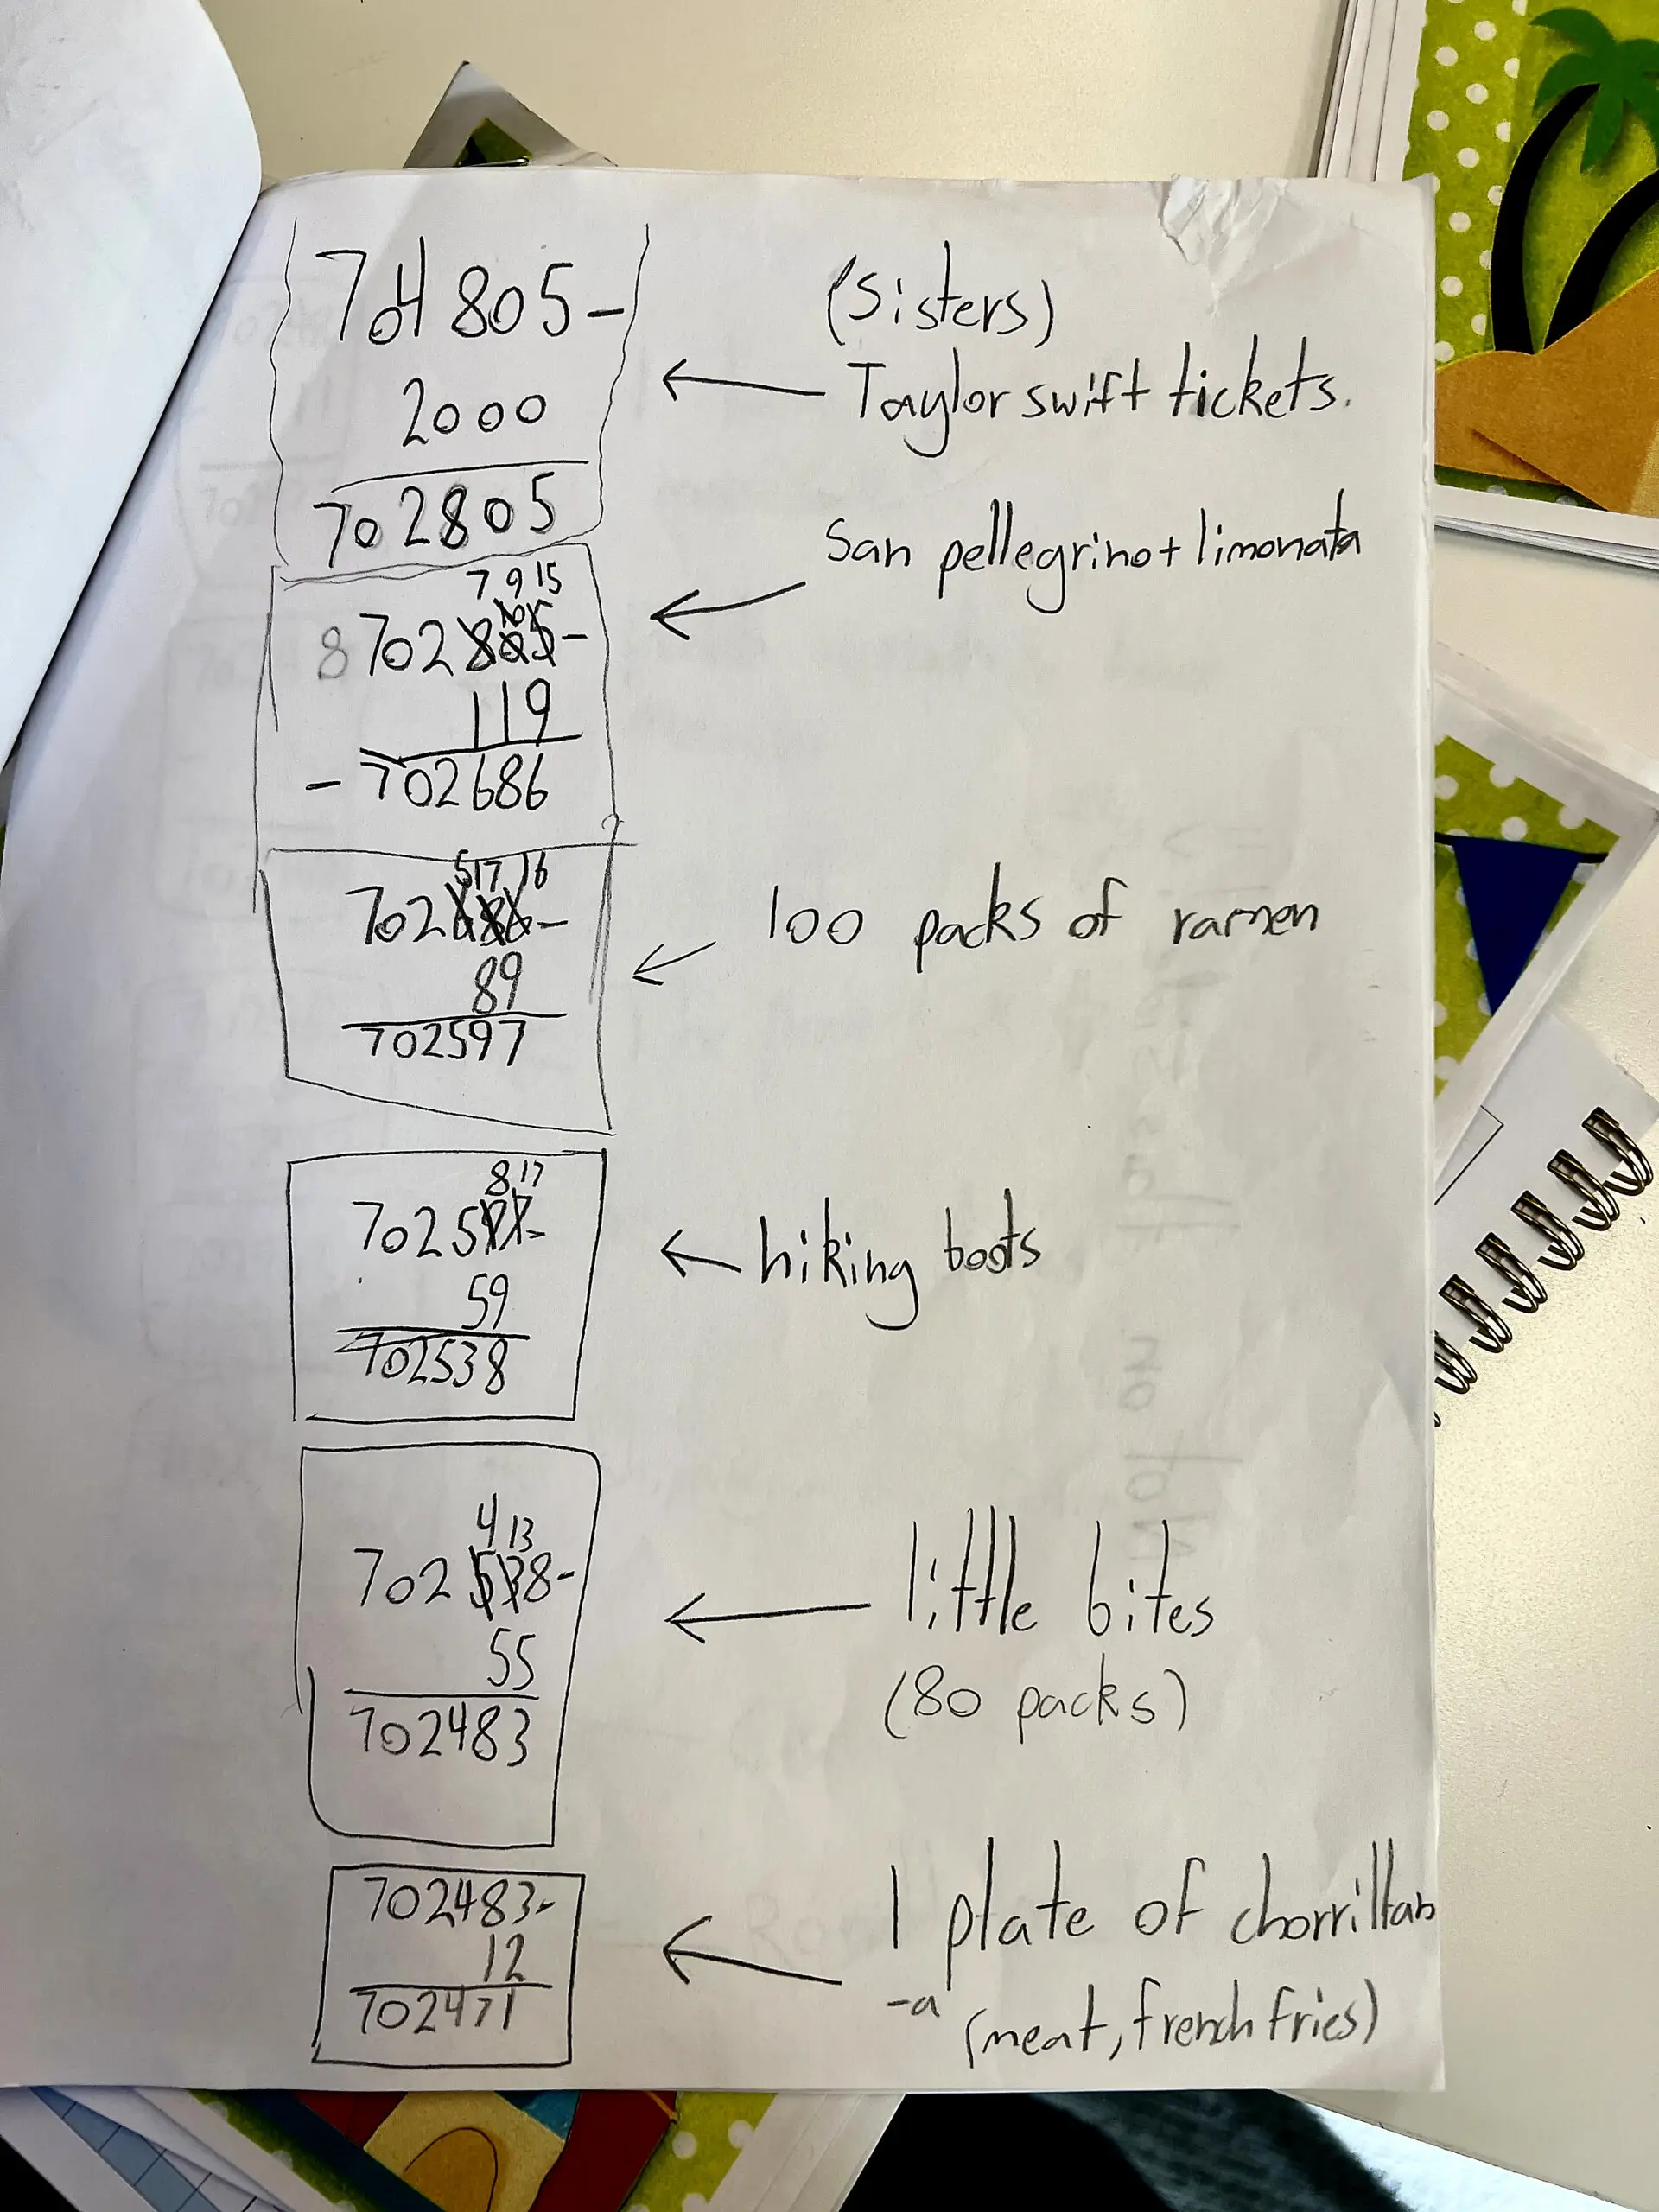 704805-
2000
702805
(Sisters)
Taylor swift tickets.
7 9 15
10
8 702805-
119
- 702686
San pellegrino + limonata
5 17 16
702686-
89
702597
100 packs of ramen
8 17
702597-
59
702538
hiking boots
4 13
702538-
55
702483
little bites
(80 packs)
702483-
12
702471
1 plate of chorrillan
-a (meat, french fries)